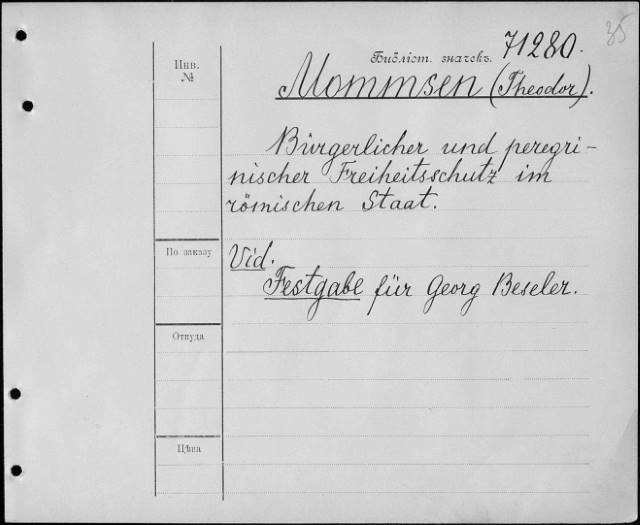 35
Библіот. значекъ. 71280.
Инв.
№
Mommsen (Theodor).
Bürgerlicher und peregri-
nischer Freiheitsschutz im
römischen Staat.
По заказу
Vid.
Festgabe für Georg Beseler.
Откуда
Цѣна